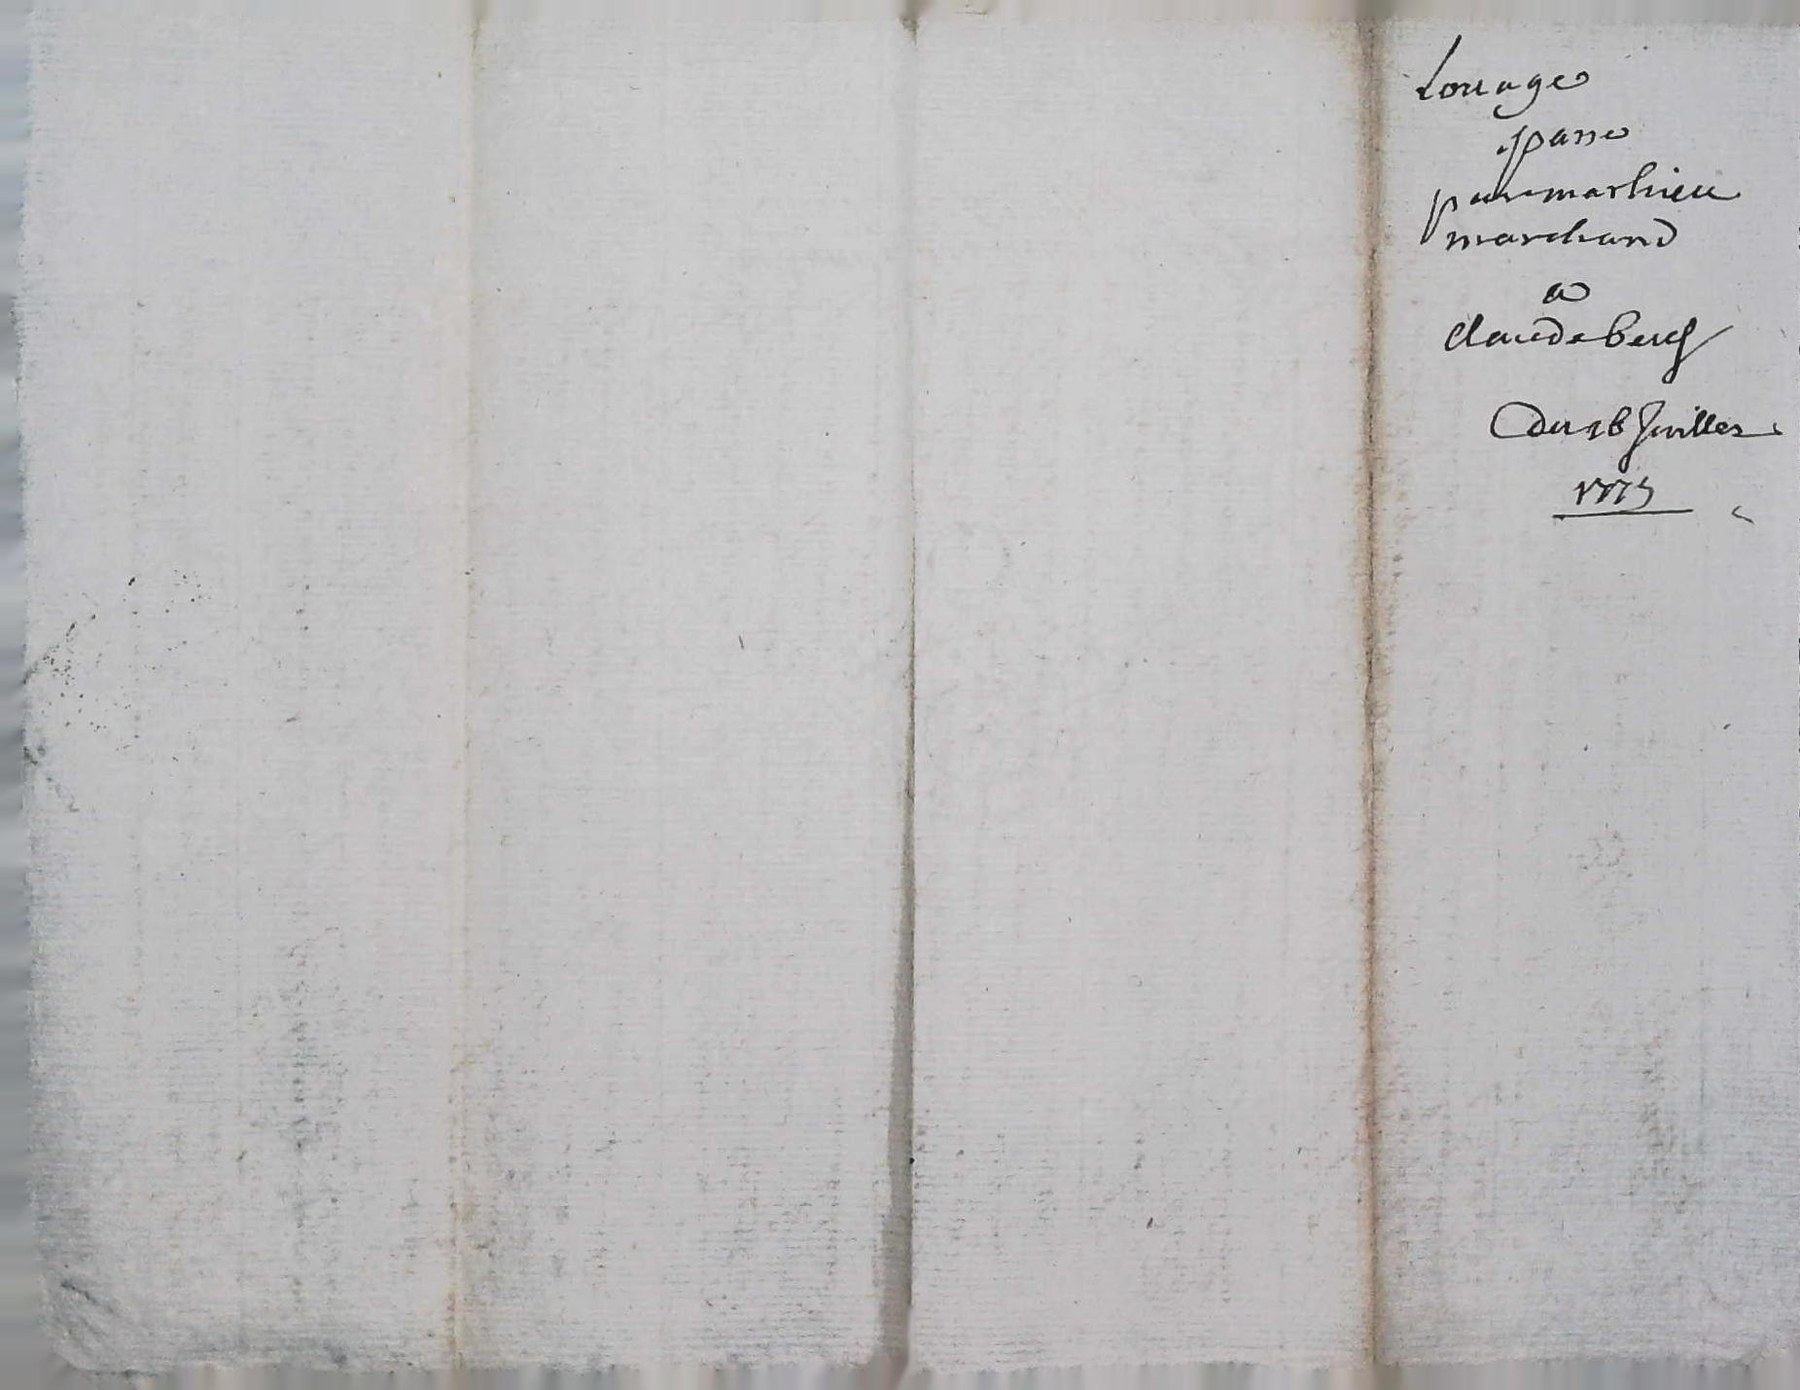 Louage
passe
par mathieu
marchand
a
claude
Du 16 Juillet
1775